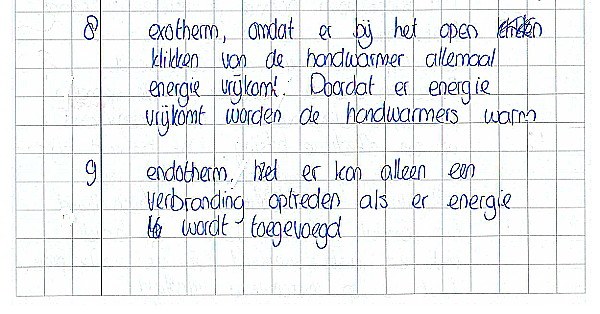 8 exotherm, omdat er bij het open
klikken van de handwarmer allemaal
energie vrijkomt. Doordat er energie
vrijkomt worden de handwarmers warm
9 endotherm. Het er kan alleen een
verbranding optreden als er energie
wordt toegevoegd